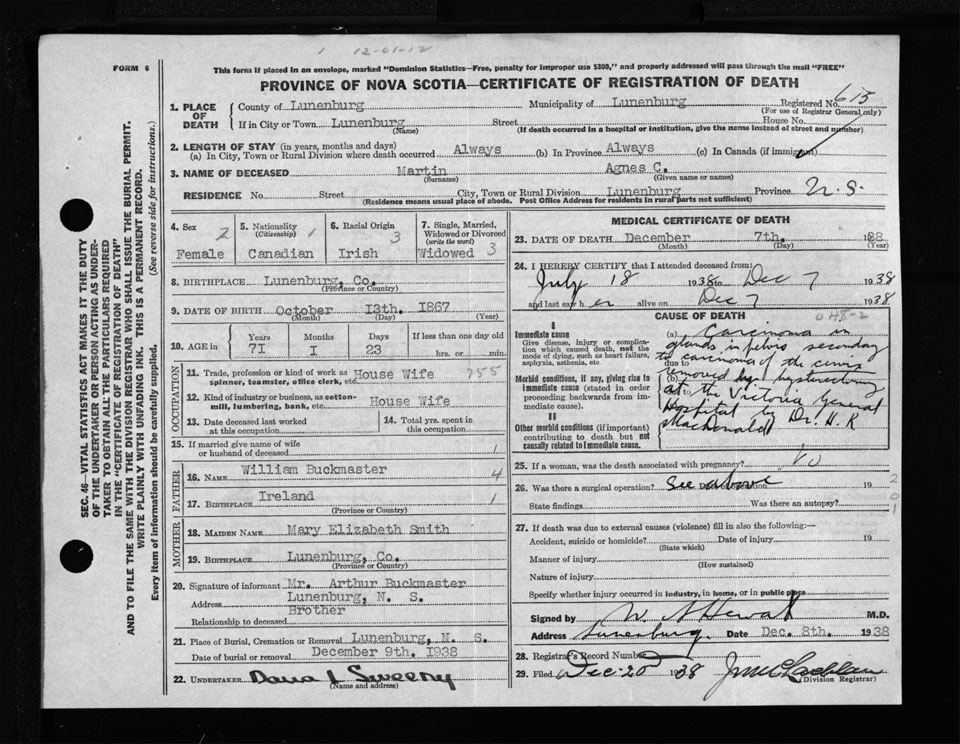 1 12-01-12
FORM 6
This form if placed in an envelope, marked "Dominion Statistics—Free, penalty for improper use $300," and properly addressed will pass through the mail "FREE"
PROVINCE OF NOVA SCOTIA—CERTIFICATE OF REGISTRATION OF DEATH
SEC. 46—VITAL STATISTICS ACT MAKES IT THE DUTY
OF THE UNDERTAKER OR PERSON ACTING AS UNDER-
TAKER TO OBTAIN ALL THE PARTICULARS REQUIRED
IN THE "CERTIFICATE OF REGISTRATION OF DEATH"
AND TO FILE THE SAME WITH THE DIVISION REGISTRAR WHO SHALL ISSUE THE BURIAL PERMIT.
WRITE PLAINLY WITH UNFADING INK. THIS IS A PERMANENT RECORD.
Every item of information should be carefully supplied. (See reverse side for instructions.)
1. PLACE OF DEATH
County of Lunenburg Municipality of Lunenburg Registered No. 615
(For use of Registrar General only)
If in City or Town Lunenburg Street House No.
(Name) (If death occurred in a hospital or institution, give the name instead of street and number)
2. LENGTH OF STAY (in years, months and days)
(a) In City, Town or Rural Division where death occurred Always (b) In Province Always (c) In Canada (if immigrant)
3. NAME OF DECEASED Martin Agnes C.
(Surname) (Given name or names)
RESIDENCE No. Street City, Town or Rural Division Lunenburg Province N. S.
(Residence means usual place of abode. Post Office Address for residents in rural parts not sufficient)
4. Sex 2 Female
5. Nationality (Citizenship) 1 Canadian
6. Racial Origin 3 Irish
7. Single, Married, Widowed or Divorced (write the word) Widowed 3
8. BIRTHPLACE Lunenburg, Co.
(Province or Country)
9. DATE OF BIRTH October 13th. 1867
(Month) (Day) (Year)
10. AGE in Years Months Days If less than one day old
71 I 23 hrs. or min.
OCCUPATION
11. Trade, profession or kind of work as spinner, teamster, office clerk, etc. House Wife 755
12. Kind of industry or business, as cotton-mill, lumbering, bank, etc. House Wife
13. Date deceased last worked at this occupation
14. Total yrs. spent in this occupation
15. If married give name of wife or husband of deceased 1
FATHER
16. NAME William Buckmaster 4
17. BIRTHPLACE Ireland 1
(Province or Country)
MOTHER
18. MAIDEN NAME Mary Elizabeth Smith
19. BIRTHPLACE Lunenburg, Co.
(Province or Country)
20. Signature of informant Mr. Arthur Buckmaster
Address Lunenburg, N. S.
Relationship to deceased Brother
21. Place of Burial, Cremation or Removal Lunenburg, N. S.
Date of burial or removal December 9th. 1938
22. UNDERTAKER Sweeny
(Name and address)
MEDICAL CERTIFICATE OF DEATH
23. DATE OF DEATH December 7th. 1938
(Month) (Day)
24. I HEREBY CERTIFY that I attended deceased from:
July 18 1938 to Dec 7 1938
and last saw her alive on Dec 7 1938
CAUSE OF DEATH 048-2
I
Immediate cause
Give disease, injury or complication which caused death, not the mode of dying, such as heart failure, asphyxia, asthenia, etc.
Morbid conditions, if any, giving rise to immediate cause (stated in order proceeding backwards from immediate cause).
II
Other morbid conditions (if important) contributing to death but not causally related to immediate cause.
(a) Carcinoma in
glands in pelvis secondary
due to
to carcinoma of the cervix
(b) removed by hysterectomy
at the Victoria General
Hospital by Dr. H. K
MacDonald
25. If a woman, was the death associated with pregnancy? No
26. Was there a surgical operation? See above Date of operation 19 2
State findings Was there an autopsy? 0 1
27. If death was due to external causes (violence) fill in also the following:—
Accident, suicide or homicide? Date of injury 19
(State which)
Manner of injury
(How sustained)
Nature of injury
Specify whether injury occurred in industry, in home, or in public place
Signed by M.D.
Address Lunenburg. Date Dec. 8th. 1938
28. Registrar's Record Number
29. Filed Dec 20 1938
(Division Registrar)